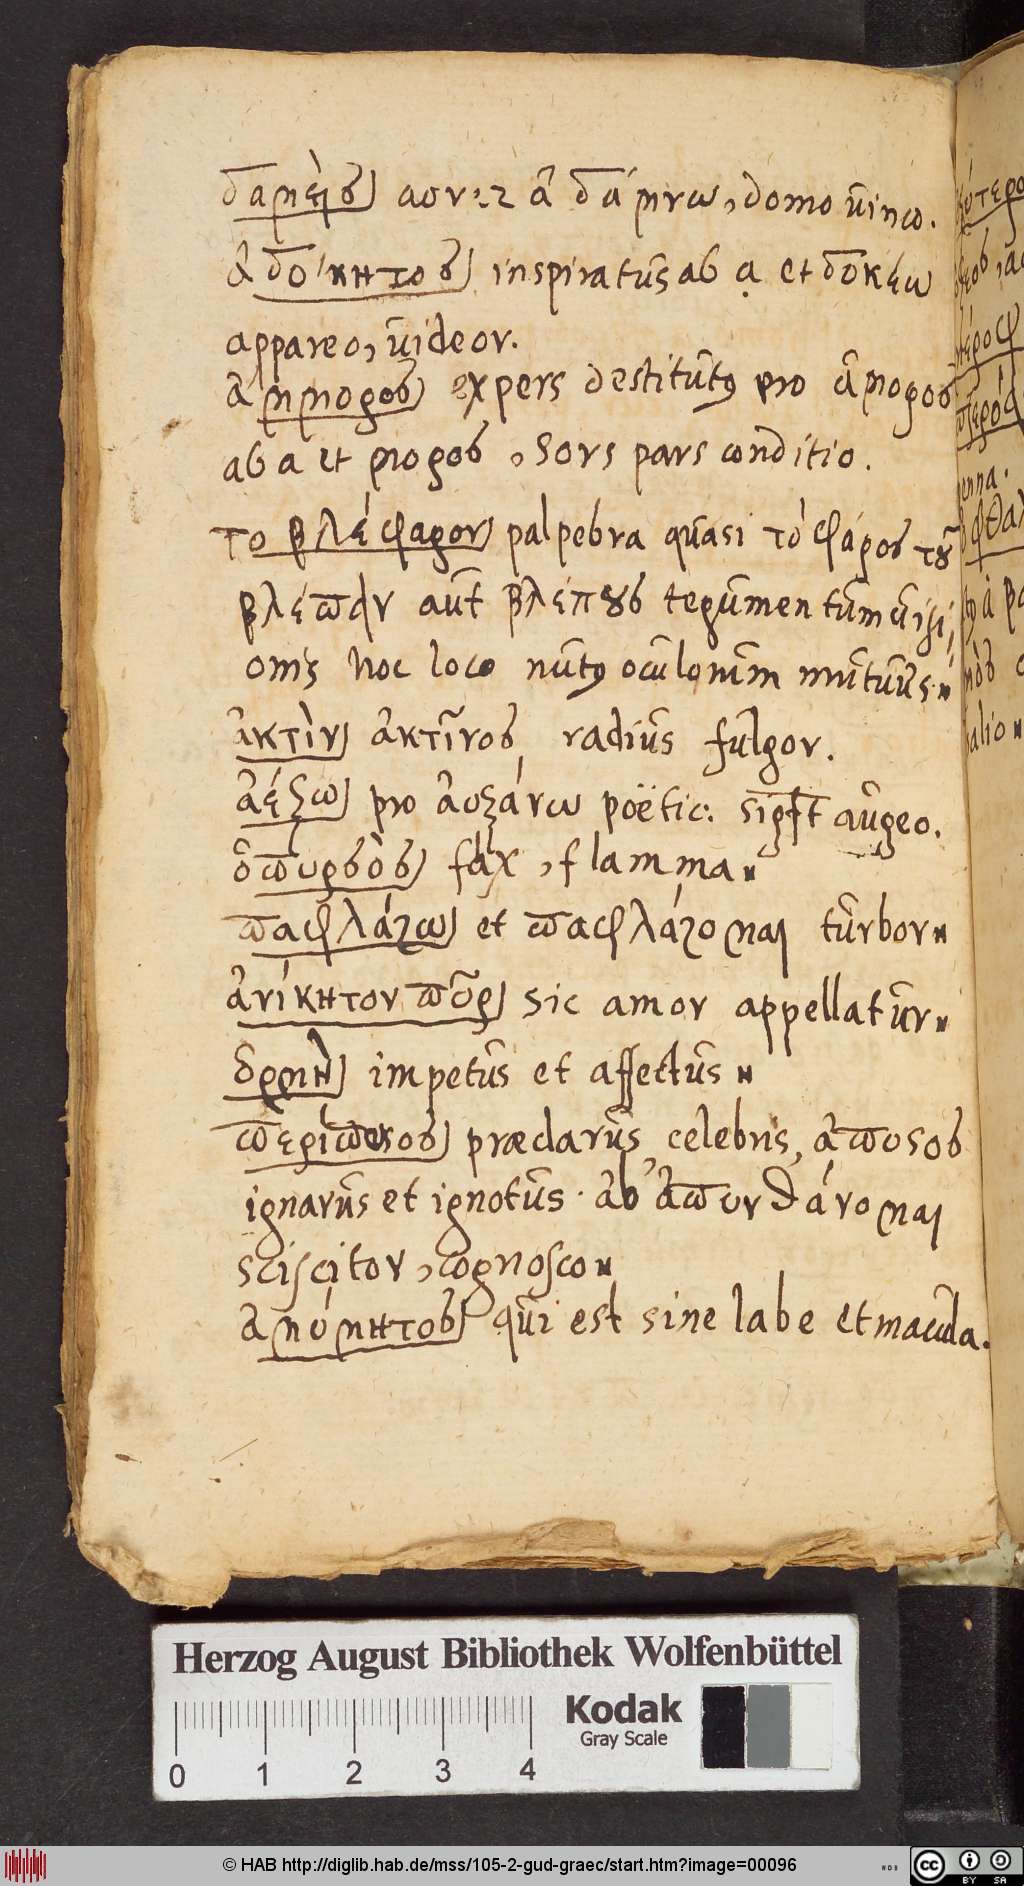 δαμεὶς) aor. 2 ἀ δάμνω, domo vinco.
ἀδόκητος) inspiratus ab α et δοκέω
appareo, videor.
ἄμμορος) expers destitutus pro ἄμορος
ab a et μορος, sors pars conditio.
το βλέφαρον) palpebra quasi τὸ φάρος τοῦ
βλέπειν aut βλέπους tegumentum visi
onis hoc loco
ἀκτὶν) ἀκτῖνος radius fulgor.
ἀέξω) pro ἀυξάνω poëtic: sigft augeo.
fax, flamma
παφλάζω) et παφλάζομαι turbor
ἀνίκητον πῦρ) sic amor appellatur
ὁρμὴ) impetus et affectus
præclarus, celebris, ἄπυσος
ignarus et ignotus. ab ἀπυνθάνομαι
sciscitor, cognosco
αμύμητος) qui est sine labe et macula.
Herzog August Bibliothek Wolfenbüttel
Kodak
Gray Scale
0 1 2 3 4
© HAB http://diglib.hab.de/mss/105-2-gud-graec/start.htm?image=00096
cc BY SA